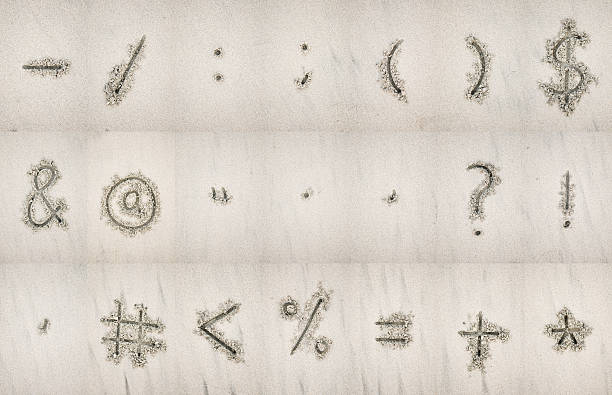 - / : ; ( ) $
& @ " . , ? !
' # < % = + *